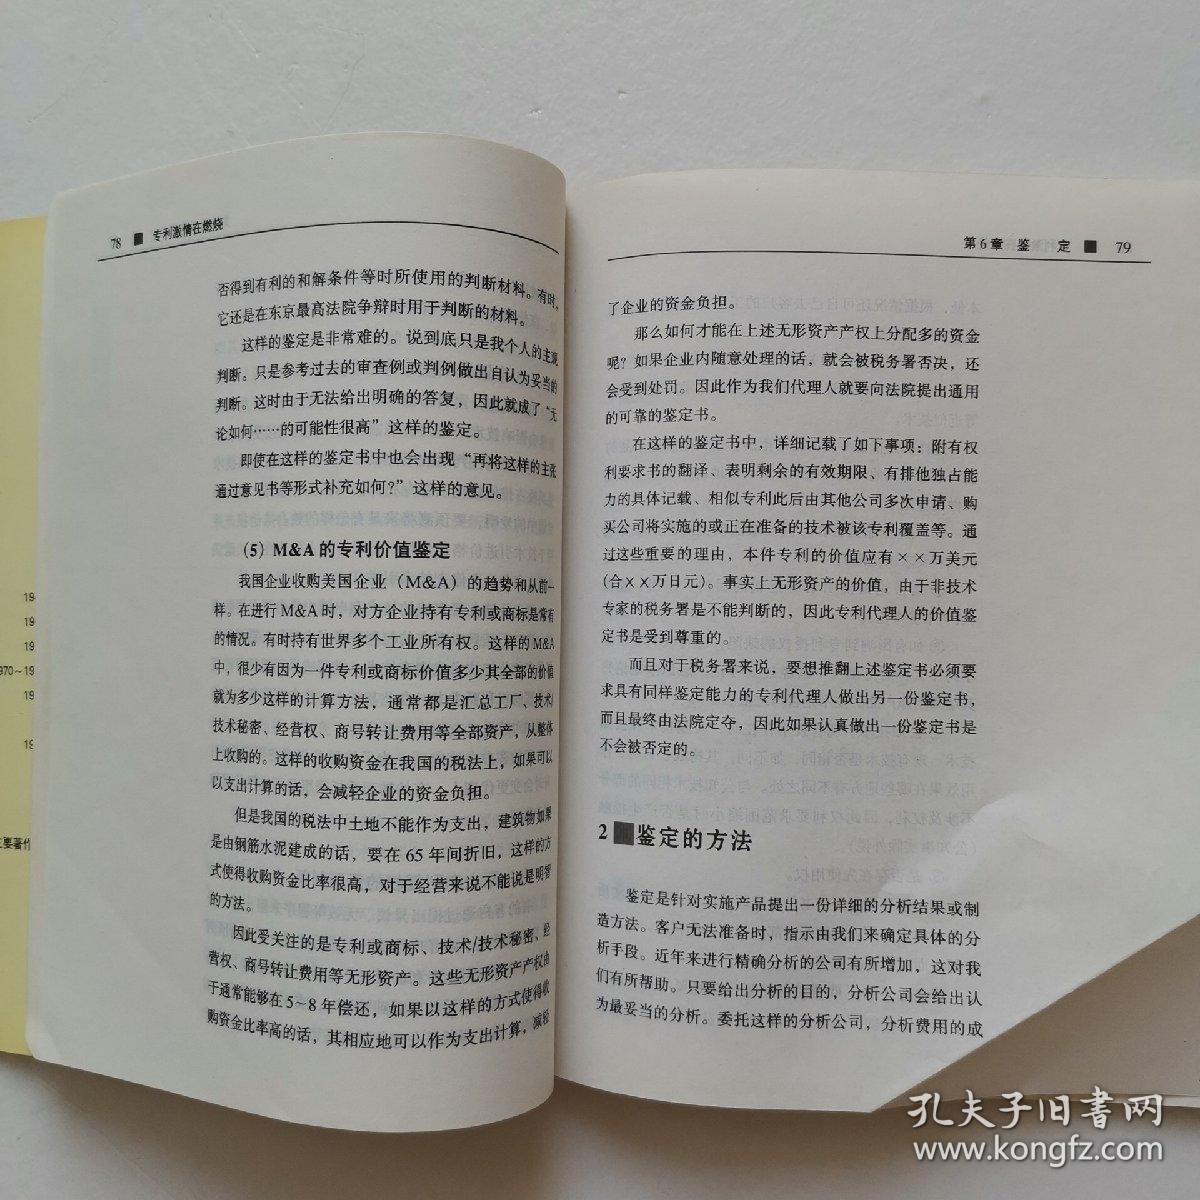 78 ■ 专利激情在燃烧
否得到有利的和解条件等时所使用的判断材料。有时,
它还是在东京最高法院争辩时用于判断的材料。
这样的鉴定是非常难的。说到底只是我个人的主观
判断。只是参考过去的审查例或判例做出自认为妥当的
判断。这时由于无法给出明确的答复，因此就成了“无
论如何……的可能性很高”这样的鉴定。
即使在这样的鉴定书中也会出现“再将这样的主张
通过意见书等形式补充如何?”这样的意见。
(5) M&A 的专利价值鉴定
我国企业收购美国企业（M&A）的趋势和从前一
样。在进行 M&A 时，对方企业持有专利或商标是常有
的情况。有时持有世界多个工业所有权。这样的 M&A
中，很少有因为一件专利或商标价值多少其全部的价值
就为多少这样的计算方法，通常都是汇总工厂、技术/
技术秘密、经营权、商号转让费用等全部资产，从整体
上收购的。这样的收购资金在我国的税法上，如果可以
以支出计算的话，会减轻企业的资金负担。
但是我国的税法中土地不能作为支出，建筑物如果
是由钢筋水泥建成的话，要在 65 年间折旧，这样的方
式使得收购资金比率很高，对于经营来说不能说是明智
的方法。
因此受关注的是专利或商标、技术/技术秘密、经
营权、商号转让费用等无形资产。这些无形资产产权由
于通常能够在 5～8 年偿还，如果以这样的方式使得收
购资金比率高的话，其相应地可以作为支出计算，减轻
第 6 章 鉴 定 ■ 79
了企业的资金负担。
那么如何才能在上述无形资产产权上分配多的资金
呢？如果企业内随意处理的话，就会被税务署否决，还
会受到处罚。因此作为我们代理人就要向法院提出通用
的可靠的鉴定书。
在这样的鉴定书中，详细记载了如下事项：附有权
利要求书的翻译、表明剩余的有效期限、有排他独占能
力的具体记载、相似专利此后由其他公司多次申请、购
买公司将实施的或正在准备的技术被该专利覆盖等。通
过这些重要的理由，本件专利的价值应有××万美元
(合××万日元)。事实上无形资产的价值，由于非技术
专家的税务署是不能判断的，因此专利代理人的价值鉴
定书是受到尊重的。
而且对于税务署来说，要想推翻上述鉴定书必须要
求具有同样鉴定能力的专利代理人做出另一份鉴定书，
而且最终由法院定夺，因此如果认真做出一份鉴定书是
不会被否定的。
2 ■ 鉴定的方法
鉴定是针对实施产品提出一份详细的分析结果或制
造方法。客户无法准备时，指示由我们来确定具体的分
析手段。近年来进行精确分析的公司有所增加，这对我
们有所帮助。只要给出分析的目的，分析公司会给出认
为最妥当的分析。委托这样的分析公司，分析费用的成
19
19
19
970～19
19
19
主要著作
孔夫子旧书网
www.kongfz.com